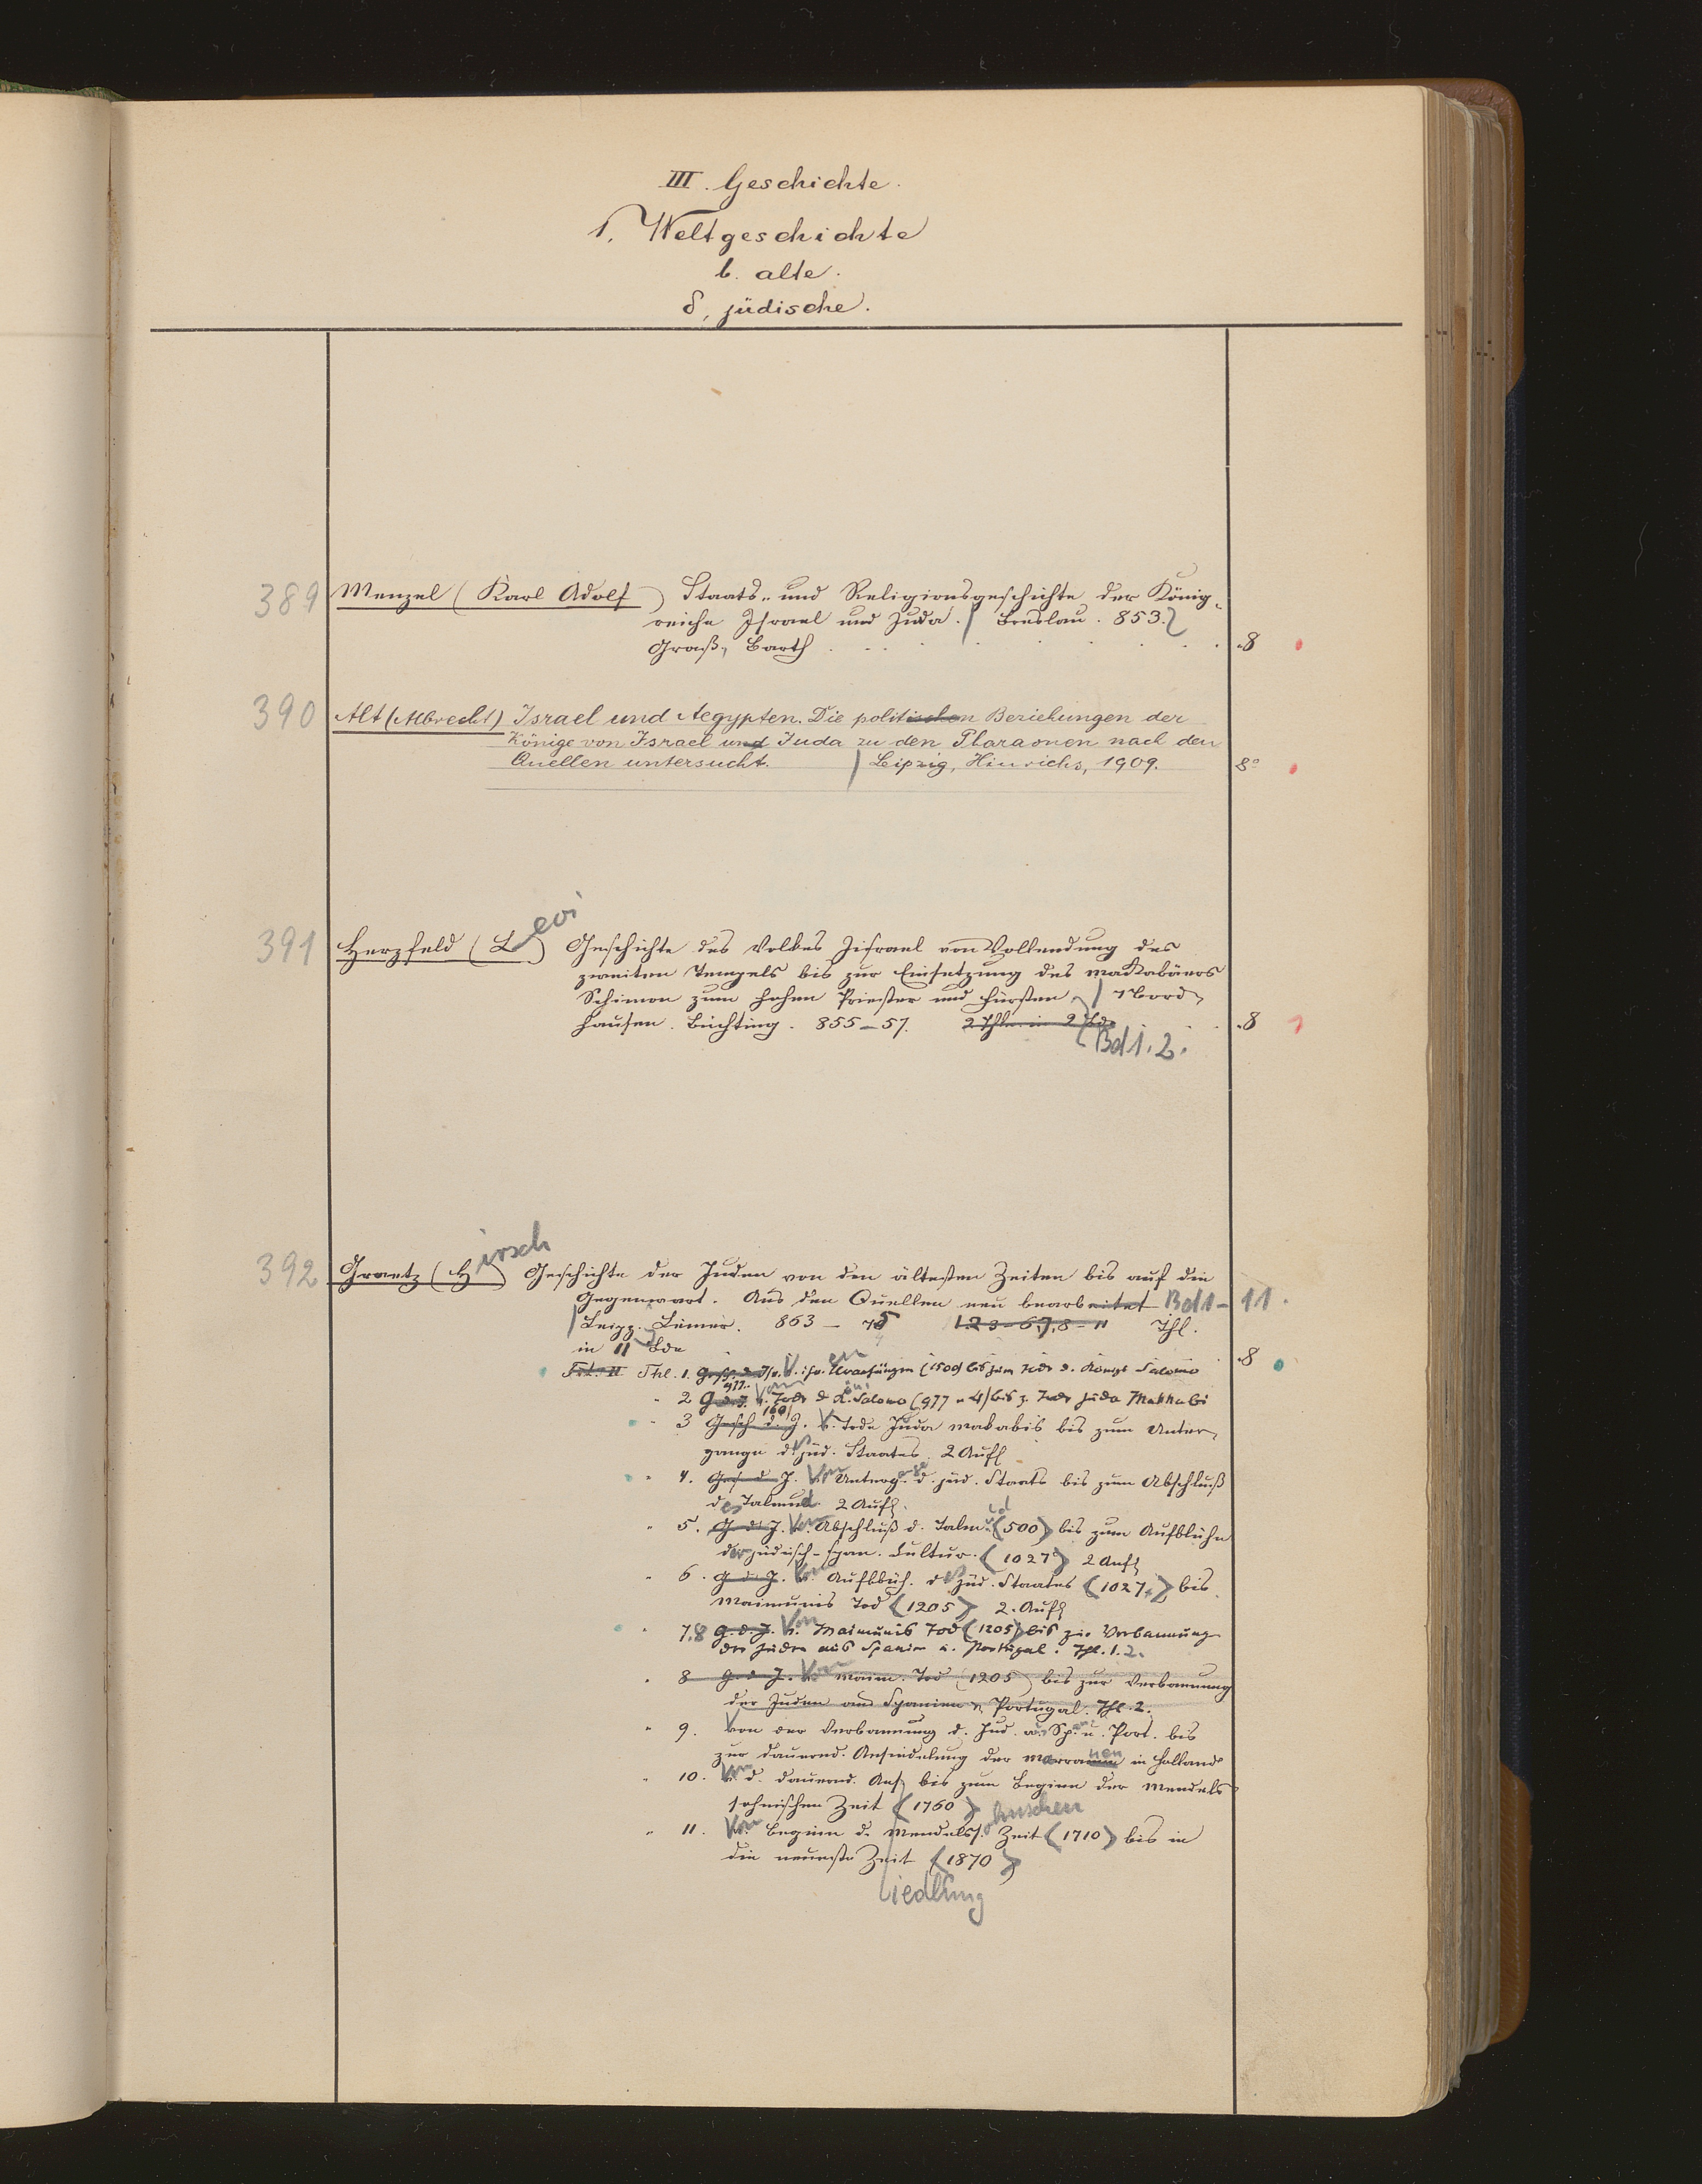 III. Geschichte.
1. Weltgeschichte
b. alte.
δ, jüdische.
389 Menzel (Karl Adolf) Staats- und Religionsgeschichte der König-
reiche Israel und Juda. / Breslau. 853.
Graß, Barth . . . . . . . . 8
390 Alt (Albrecht) Israel und Aegypten. Die politischen Beziehungen der
Könige von Israel und Juda zu den Pharaonen nach den
Quellen untersucht. / Leipzig, Hinrichs, 1909. 8°
391 Herzfeld (Levi) Geschichte des Volkes Jisrael von Vollendung des
zweiten Tempels bis zur Einsetzung des Makkabäers
Schimon zum hohen Priester und Fürsten / Nord-
hausen. Büchting. 855–57. 2 Thle in 2 Bde . . 8
Bd 1.2.
392 Graetz (Hirsch) Geschichte der Juden von den ältesten Zeiten bis auf die
Gegenwart. Aus den Quellen neu bearbeitet Bd 1–11.
/ Leipz. Leiner. 863 – 75 Thl.
in 11 Bde 8
Thl. 1. Uranfängen (1500) bis zum Tode d. Königs Salomo
" 2 G. d. J. Von Tode d. K. Salomo (977 bis z. Tode Juda Makkabi
160
" 3 Gesch d. J. v. Tode Juda Makabis bis zum Unter-
gange d. jüd. Staates. 2 Aufl
" 4. Ges d J. Von Unterg. d. jüd. Staats bis zum Abschluß
des Talmud. 2 Aufl.
" 5. G. d. J. Von Abschluß d. Talm. (500) bis zum Aufblühn
der jüdisch-span. Cultur. (1027) 2 Aufl
" 6. G. d. J. Von Aufblüh. d. jüd. Staates (1027) bis
Maimunis Tod (1205) 2. Aufl
" 7.8 G. d. J. Von Maimunis Tod (1205) bis zur Verbannung
der Juden aus Spanien u. Portugal. Thl. 1.2.
" 8 G. d. J. Von Maim. Tod (1205) bis zur Verbannung
der Juden aus Spanien u. Portugal. Thl. 2.
" 9. Von der Verbannung d. Jud. a. Sp. u. Port. bis
zur dauernd. Ansiedelung der Marranen in Holland
" 10. Von d. dauernd. Ans bis zum Beginn der Mendels
sohnischen Zeit (1760)
" 11. Von Beginn d. Mendelss.ohnschen Zeit (1710) bis in
die neueste Zeit (1870)
iedlung